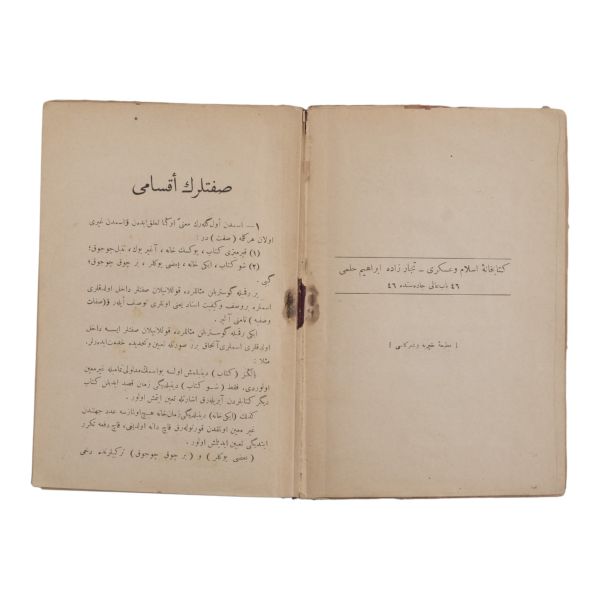 صفتلرك أقسامی
١ — اسمدن أول كله‌رك معنی اوكا تعلق ایدن اسمدن غیری
اولان هر كله ( صفت ) در :
(١) قیرمیزی كتاب ، یوكسك خانه ، آغیر یوك ، تنبل چوجوق ؛
(٢) شو كتاب ، ایكی خانه ، بعضی یوكلر ، بر چوق چوجوق ؛
كبی .
بر رقمیله كوستریلن مثاللرده قوللانیلان صفتلر داخل اولدقلری
اسملره بر وصف و كیفیت اسناد یعنی اونلری توصیف ایدر و (صفات
وصفیه ) نامنی آلیر .
ایكی رقمیله كوستریلن مثاللرده قوللانیلان صفتلر ایسه داخل
اولدقلری اسملری آنجاق بر صورتله تعیین و تحدیده خدمت ایدرلر ،
مثلا :
( كتاب ) دینیلمش اولسه بو اسمك مدلولی تمامیله غیر معین
اولوردی . فقط ( شو كتاب ) دینیلدیكی زمان قصد ایدیلن كتاب
دیكر كتابلردن آیریله‌رق اشارتله تعیین ایتمش اولور .
كذلك (ایكی خانه) دینیلدیكی زمان خانه هیچ اولمازسه عدد جهتندن
غیر معین اولمقدن قورتوله‌رق قاچ دانه اولدیغی ، قاچ دفعه تكرر
ایتدیكی تعیین ایدیلمش اولور .
( بعضی یوكلر ) و ( بر چوق چوجوق ) تركیبلرنده دخی
كتابخانهٔ اسلام و عسكری — تجار زاده ابراهیم حلمی
٤٦ باب عالی جاده‌سنده ٤٦
[ مطبعهٔ خیریه و شركاسی ]